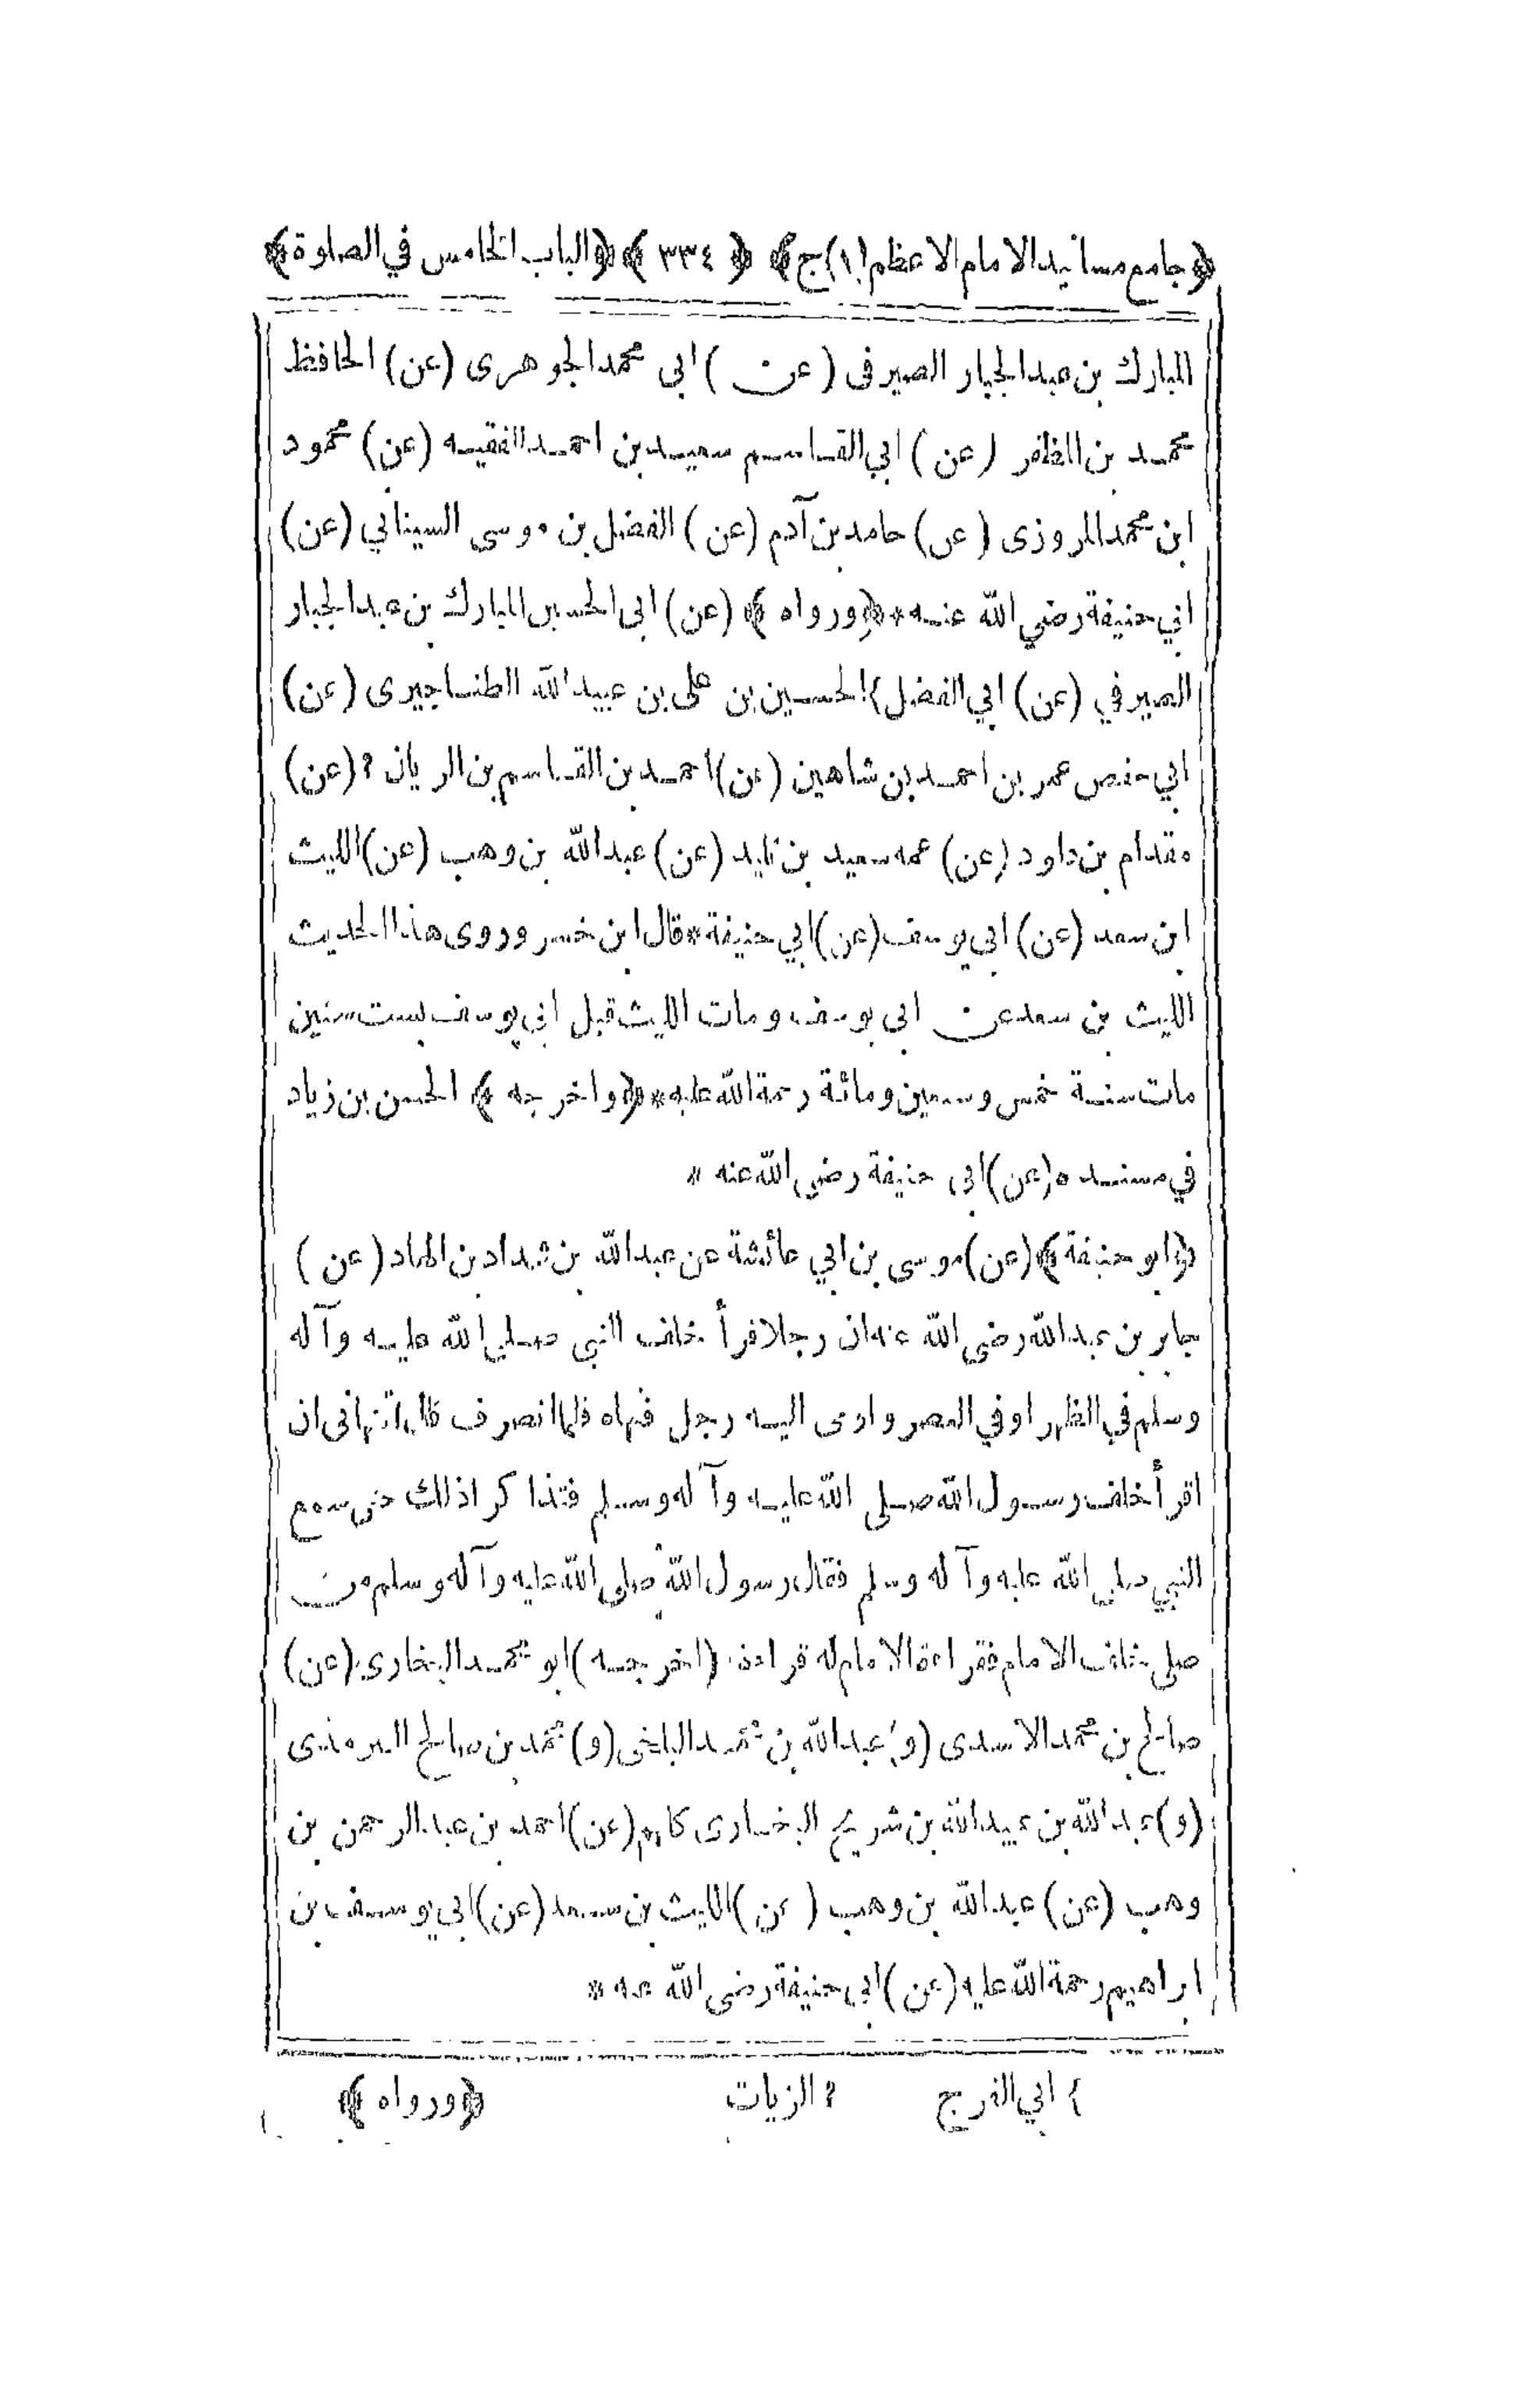 ﴿جامع مسانيد الامام الاعظم (١)ج﴾ ﴿٣٣٤﴾ ﴿والباب الخامس في الصلوة﴾
المبارك بن عبد الجبار الصيرفى (عن) ابي محمد الجوهرى (عن) الحافظ
محمد بن المظفر (عن) ابي القاسم سعيد بن احمد الفقيه (عن) محمود
ابن محمد المروزى (عن) حامد بن آدم (عن) الفضل بن موسى السيناني (عن)
ابي حنيفة رضي الله عنه * ﴿ورواه﴾ (عن) ابى الحسين المبارك بن عبد الجبار
الصيرفي (عن) ابي الفضل { الحسين بن على بن عبيد الله الطناجيرى (عن)
ابي حفص عمر بن احمد بن شاهين (عن) احمد بن القاسم بن الريان ? (عن)
مقدام بن داود (عن) عمه سعيد بن تايد (عن) عبد الله بن وهب (عن) الليث
ابن سعد (عن) ابى يوسف (عن) ابي حنيفة * قال ابن خسر وروى هذا الحديث
الليث بن سعد عن ابى يوسف ومات الليث قبل ابي يوسف بست سنين
مات سنة خمس وسبعين ومائة رحمة الله عليه * ﴿واخرجه﴾ الحسن بن زياد
في مسنده (عن) ابى حنيفة رضي الله عنه *
﴿ابو حنيفة﴾ (عن) موسى بن ابي عائشة عن عبد الله بن شداد بن الهاد (عن)
جابر بن عبد الله رضى الله عنه ان رجلا قرأ خلف النبى صلى الله عليه وآله
وسلم في الظهر او في العصر واومى اليه رجل فنهاه فلما انصرف قال اتنهانى ان
اقرأ خلف رسول الله صلى الله عليه وآله وسلم فتذاكرا ذلك حتى سمع
النبي صلى الله عليه وآله وسلم فقال رسول الله صلى الله عليه وآله وسلم من
صلى خلف الامام فقراءة الامام له قراءة (اخرجه) ابو محمد البخارى (عن)
صالح بن محمد الاسدى (و) عبد الله بن محمد البلخى (و) محمد بن صالح الترمذى
(و) عبد الله بن عبيد الله بن شريح البخارى كلهم (عن) احمد بن عبد الرحمن بن
وهب (عن) عبد الله بن وهب (عن) الليث بن سعد (عن) ابي يوسف بن
ابراهيم رحمة الله عليه (عن) ابى حنيفة رضى الله عنه *
{ ابي الفرج ? الزيات ﴿ورواه﴾